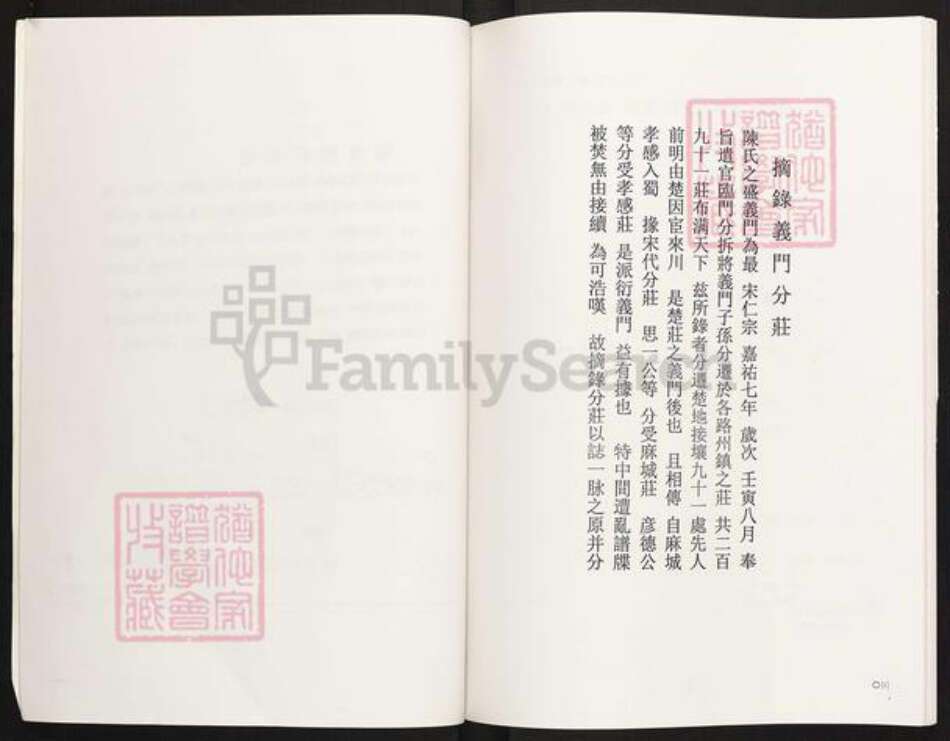 摘錄義門分莊
陳氏之盛義門為最 宋仁宗 嘉祐七年 歲次 壬寅八月 奉
旨遣官臨門分拆將義門子孫分遷於各路州鎮之莊 共二百
九十一莊布滿天下 茲所錄者分遷楚地接壤九十一處先人
前明由楚因宦來川 是楚莊之義門後也 且相傳 自麻城
孝感入蜀 據宋代分莊 思一公等 分受麻城莊 彥德公
等分受孝感莊 是派衍義門 益有據也 特中間遭亂譜牒
被焚無由接續 為可浩嘆 故摘錄分莊以誌一脉之原并分
猶他家
譜學會
收藏
猶他家
譜學會
收藏
FamilySearch